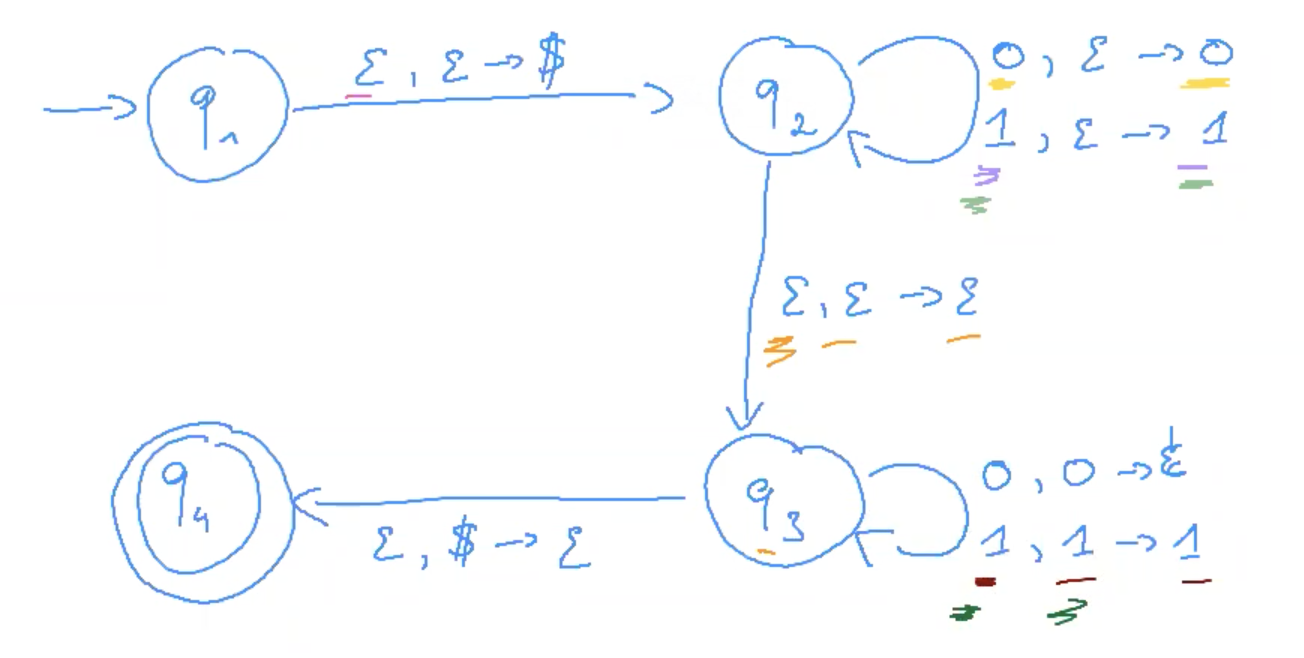 q₁
ε, ε → $
q₂
0, ε → 0
1, ε → 1
ε, ε → ε
q₃
0, 0 → ε
1, 1 → 1
ε, $ → ε
q₄